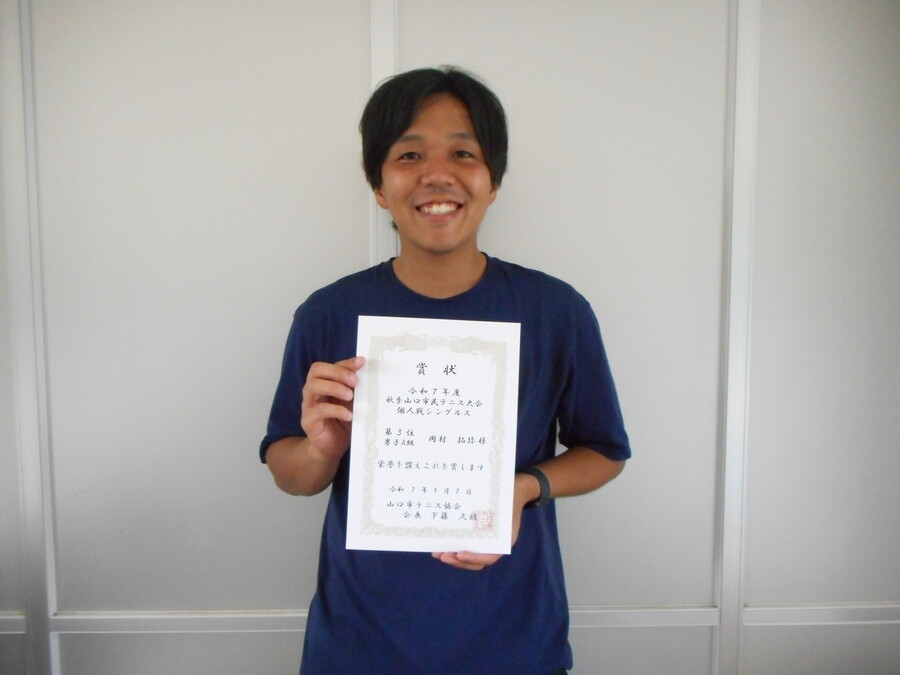 賞状
令和7年度
秋季山口市民テニス大会
個人戦シングルス
第3位
男子A級 岡村 拓弥 様
栄誉を讃えこれを賞します
令和7年9月7日
山口市テニス協会
会長 下藤